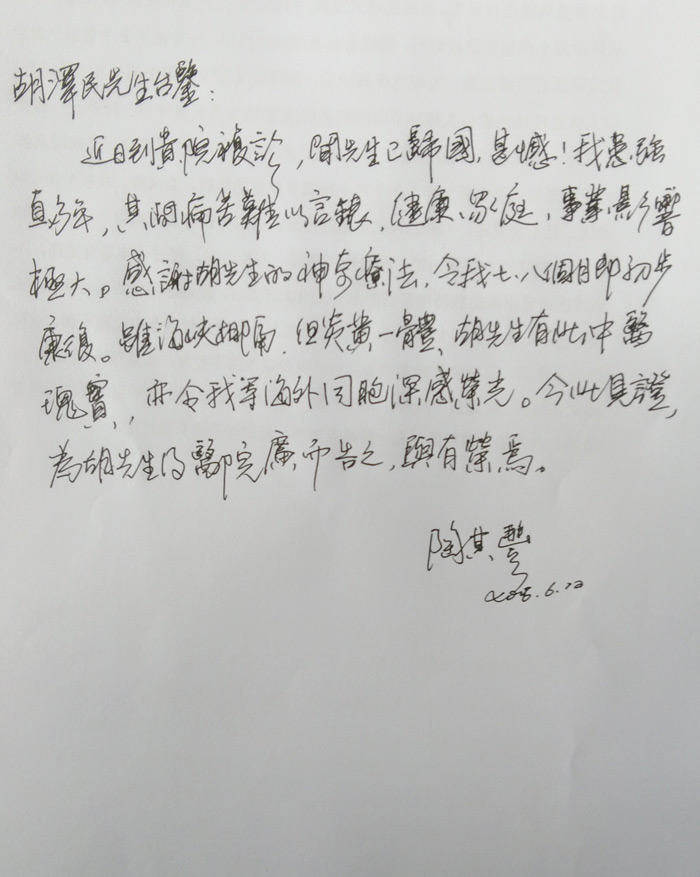 胡澤民先生台鑒：
近日到貴院複診，聞先生已歸國，甚憾！我患強
直多年，其間病苦難以言錶，健康、家庭、事業影響
極大。感謝胡先生的神奇療法，令我七、八個月即初步
康復。雖海峽相隔，但炎黃一體，胡先生有此中醫
瑰寶，亦令我等海外同胞深感榮光。今此見證，
為胡先生的醫院廣而告之，與有榮焉。
陶其
6.22